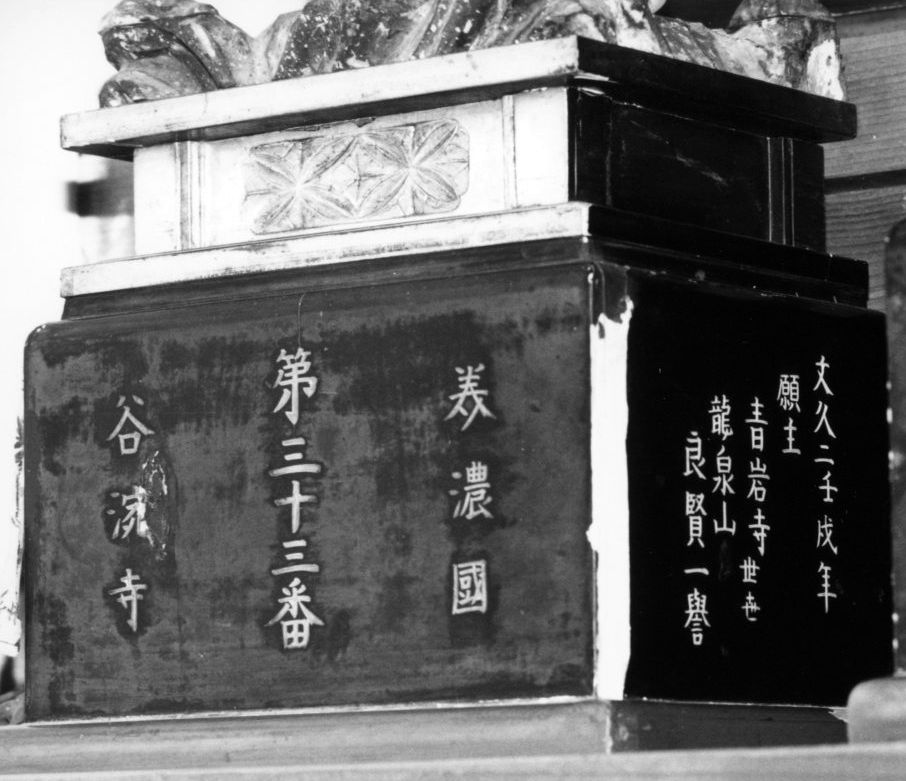 美濃國
第三十三番
谷寺
文久二壬戌年
願主
青岩寺世
龍泉山
良賢一譽